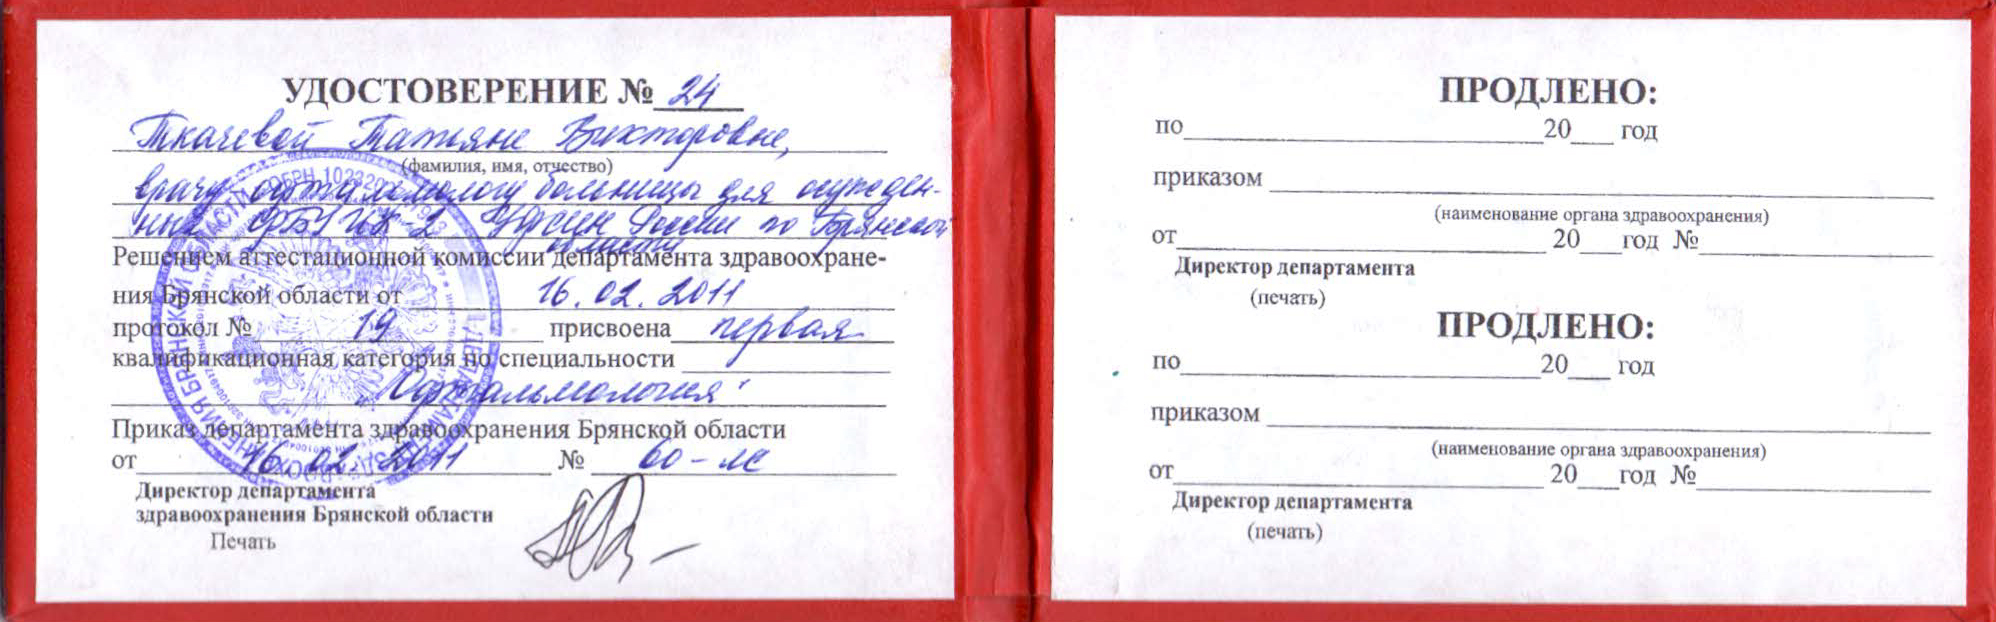 УДОСТОВЕРЕНИЕ № 24
Ткачевой Татьяне Викторовне,
(фамилия, имя, отчество)
врачу офтальмологу больницы для осужден-
ных ФБУ ИК-2 УФСИН России по Брянской
области
Решением аттестационной комиссии департамента здравоохране-
ния Брянской области от 16.02.2011
протокол № 19 присвоена первая
квалификационная категория по специальности
"Офтальмология"
Приказ департамента здравоохранения Брянской области
от 16.02.2011 № 60-лс
Директор департамента
здравоохранения Брянской области
Печать
ПРОДЛЕНО:
по 20 год
приказом
(наименование органа здравоохранения)
от 20 год №
Директор департамента
(печать)
ПРОДЛЕНО:
по 20 год
приказом
(наименование органа здравоохранения)
от 20 год №
Директор департамента
(печать)